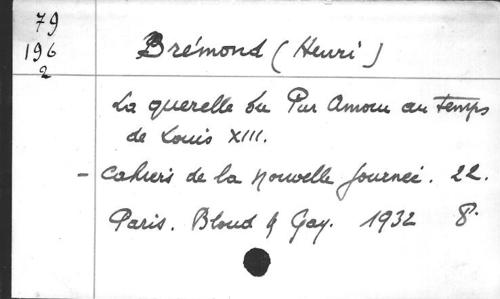 79
196
2
Brémond (Henri)
La querelle du Pur Amour au temps
de Louis XIII.
- Cahiers de la Nouvelle Journée. 22.
Paris. Bloud & Gay. 1932 8°.